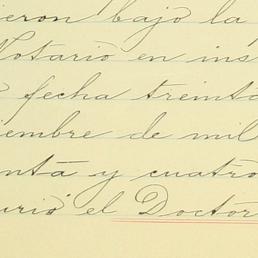 ieron bajo la
Notario en ins
fecha treinta
iembre de mil
enta y cuatro
urió el Doctor